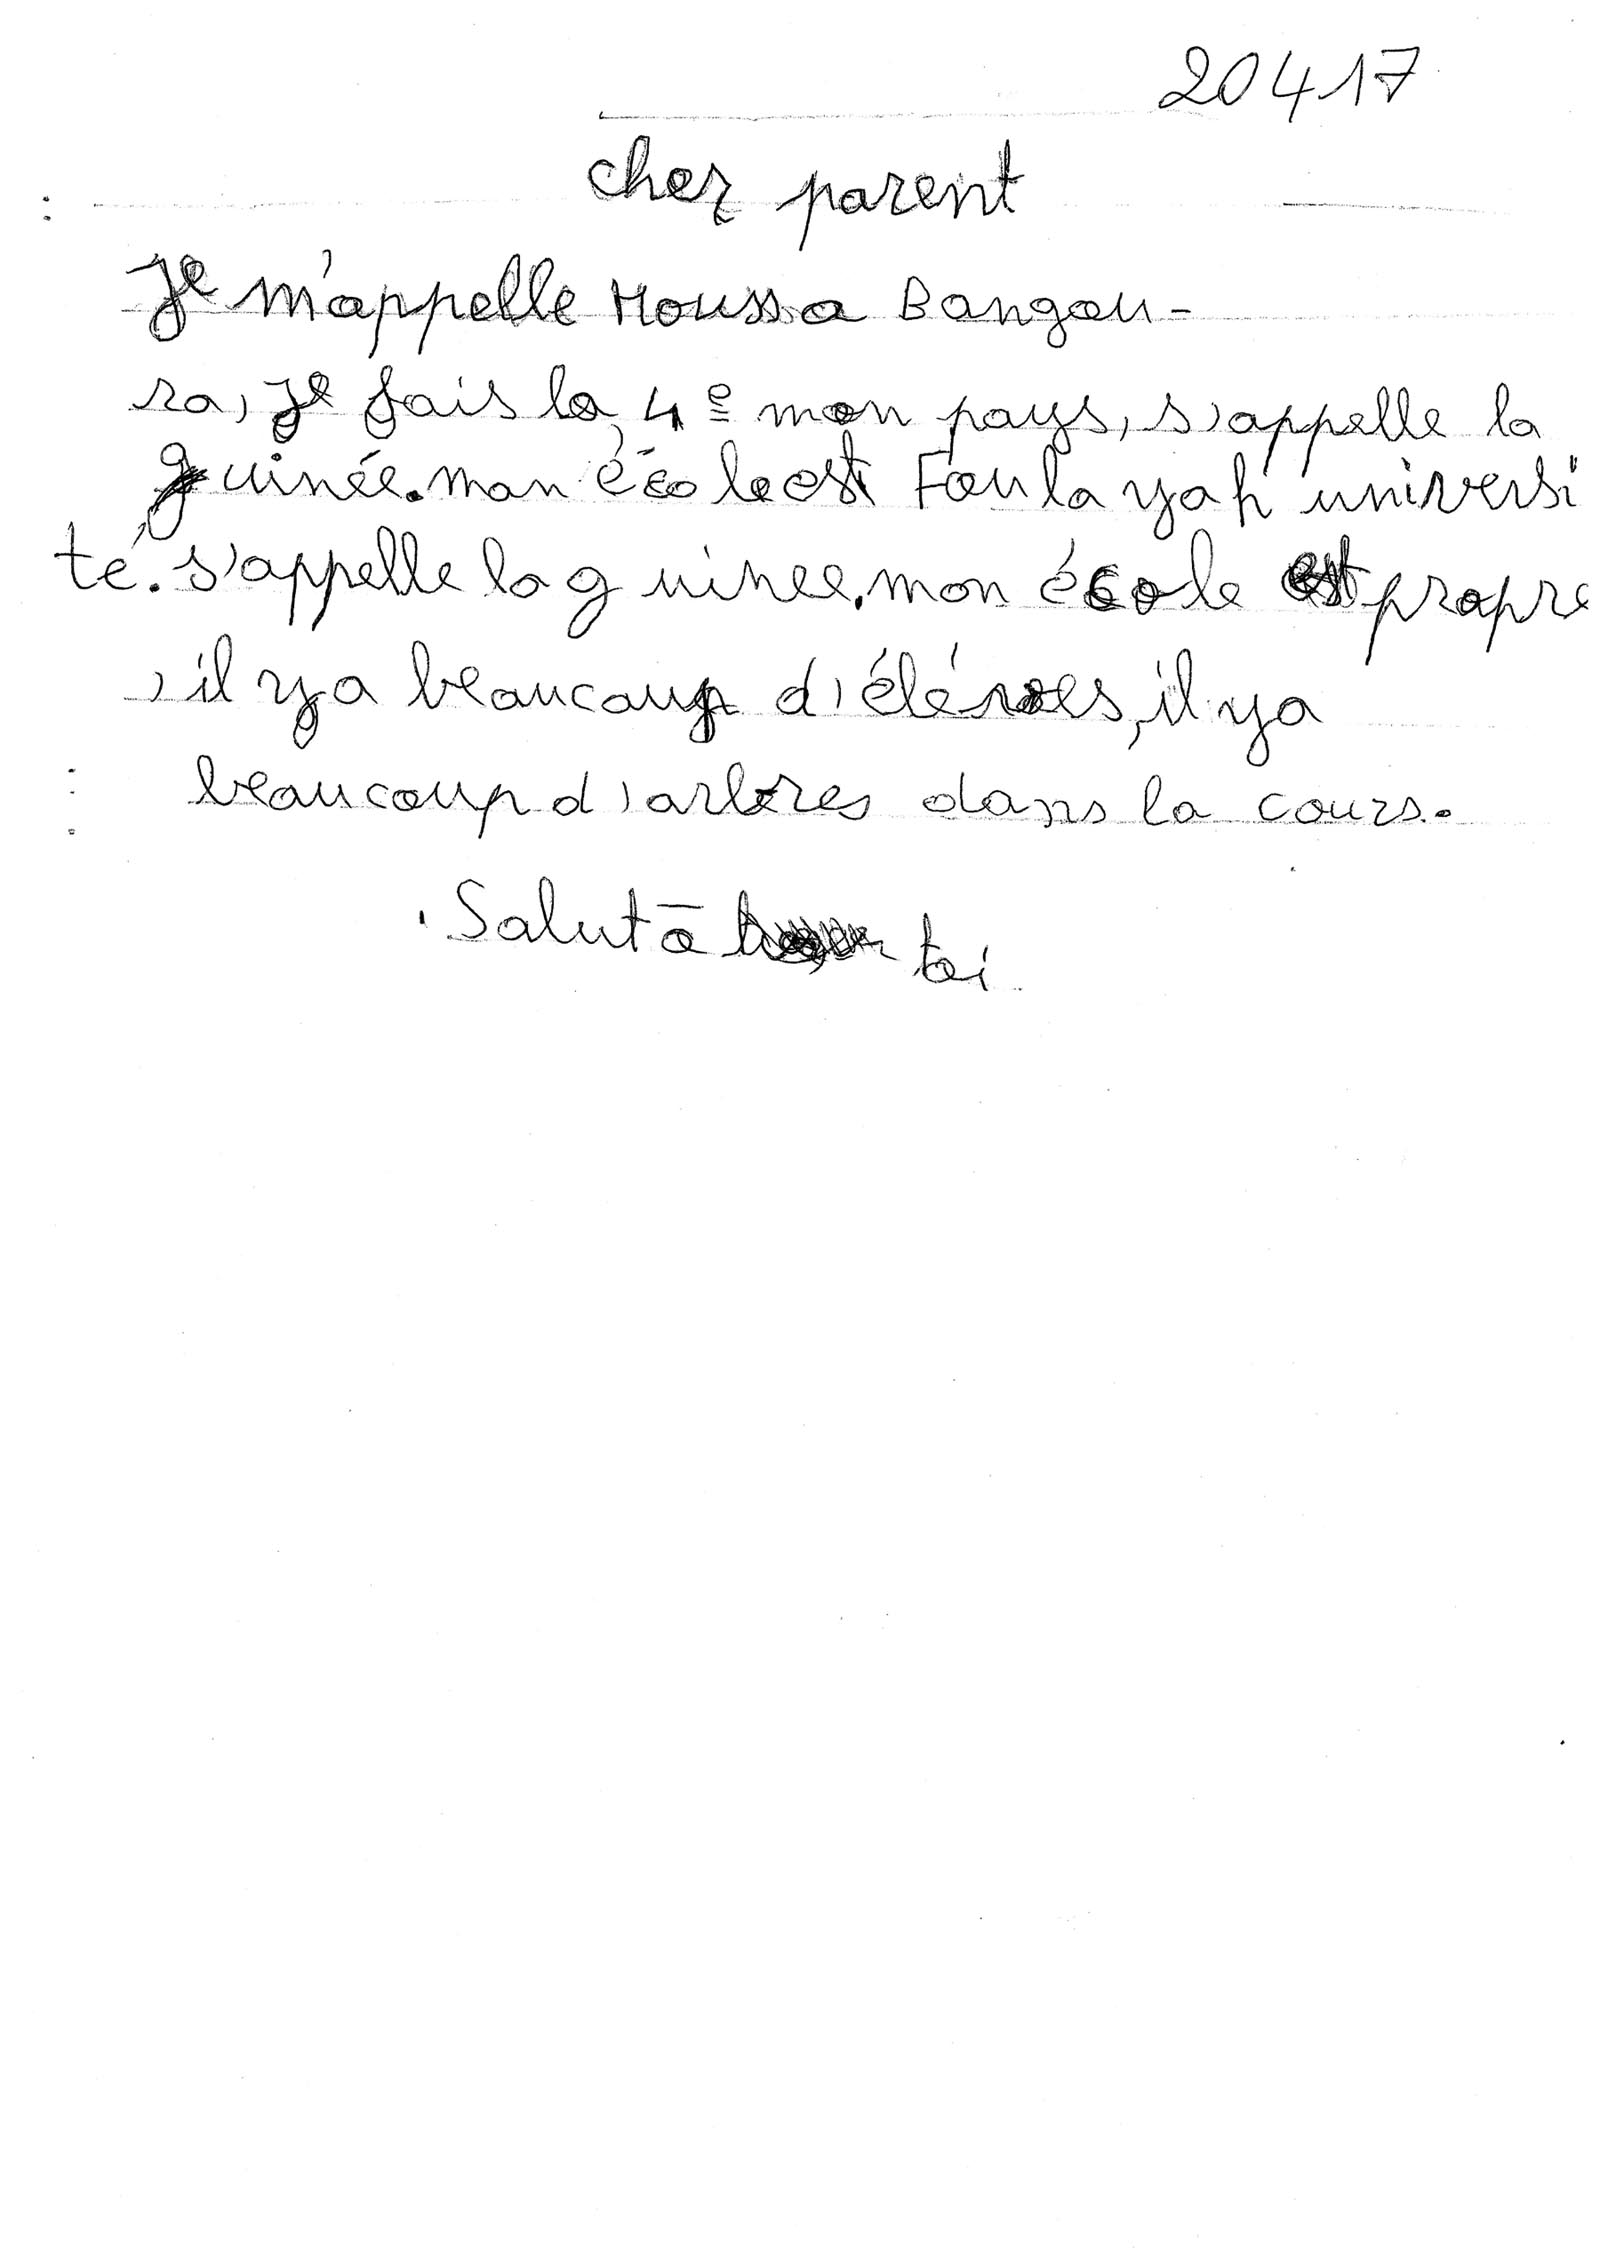 20417
cher parent
Je m'appelle Moussa Bangou-
ra, Je fais la 4e mon pays, s'appelle la
guinée. mon école est Foulayah universi
té. s'appelle la guinee. mon école est propre
, il ya beaucoup d'éléves, il ya
beaucoup d'arbres dans la cours.
Salut à toi